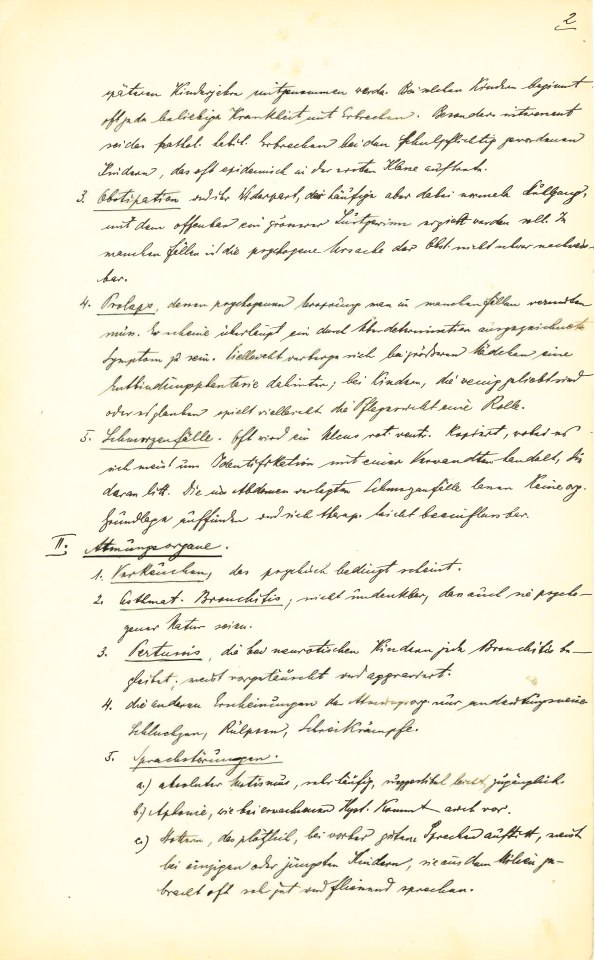 2
späteren Kinderjahre mitgenommen werde. Bei solchen Kindern beginnt
oft jede beliebige Krankheit mit Erbrechen. Besonders interessant
sei das habit. Erbrechen bei den schulpflichtig gewordenen
Kindern, das oft epidemisch in der ersten Klasse auftrete.
3. Obstipation und ihr Widerpart, der häufige aber dabei normale Stuhlgang,
mit dem offenbar ein grösserer Lustgewinn erzielt werden soll. In
manchen Fällen ist die psychogene Ursache der Obst. nicht schwer nachweis-
bar.
4. Prolaps, dessen psychogenen Ursprung man in manchen Fällen vermuten
muss. Er scheine überhaupt ein durch Überdetermination ausgezeichnetes
Symptom zu sein. Vielleicht verberge sich bei größeren Mädchen eine
Entbindungsphantasie dahinter; bei Kindern, die wenig geliebt sind
oder es glauben spielt vielleicht die eine Rolle.
5. Schmerzanfälle. Oft wird ein Ulcus rot. ventr. kopiert, wobei es
sich meist um Identifikation mit einer Verwandten handelt, die
daran litt. Die ins Abdomen verlegten Schmerzanfälle lassen keine org.
Grundlage auffinden und sich therap. leicht beeinflussbar.
II. Atmungsorgane.
1. Verkeuchen, das psychisch bedingt scheint.
2. Asthmat. Bronchitis, nicht undenkbar, dass auch sie psycho-
gener Natur seien.
3. Pertussis, die bei neurotischen Kindern jede Bronchitis be-
gleitet; meist vorgetäuscht und aggraviert.
4. die anderen Erscheinungen der Atmungsorg. nur andeutungsweise
Schluchzen, Rülpsen, Schreikrämpfe.
5. Sprachstörungen.
a) absoluter Mutismus, sehr häufig, suggestibel leicht zugänglich.
b) Aphonie, wie bei erwachsenen Hyst. kommt auch vor.
c) Stottern, das plötzlich, bei vorher gutem Sprechen auftritt, meist
bei einzigen oder jüngsten Kindern, sie aus dem Milieu ge-
bracht oft sehr gut und fliessend sprechen.